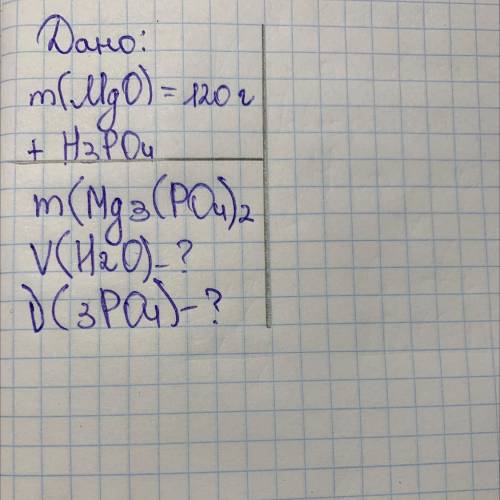 Дано:
m(MgO) = 120 г
+ H3PO4
m(Mg3(PO4)2
V(H2O) - ?
ν(3PO4) - ?